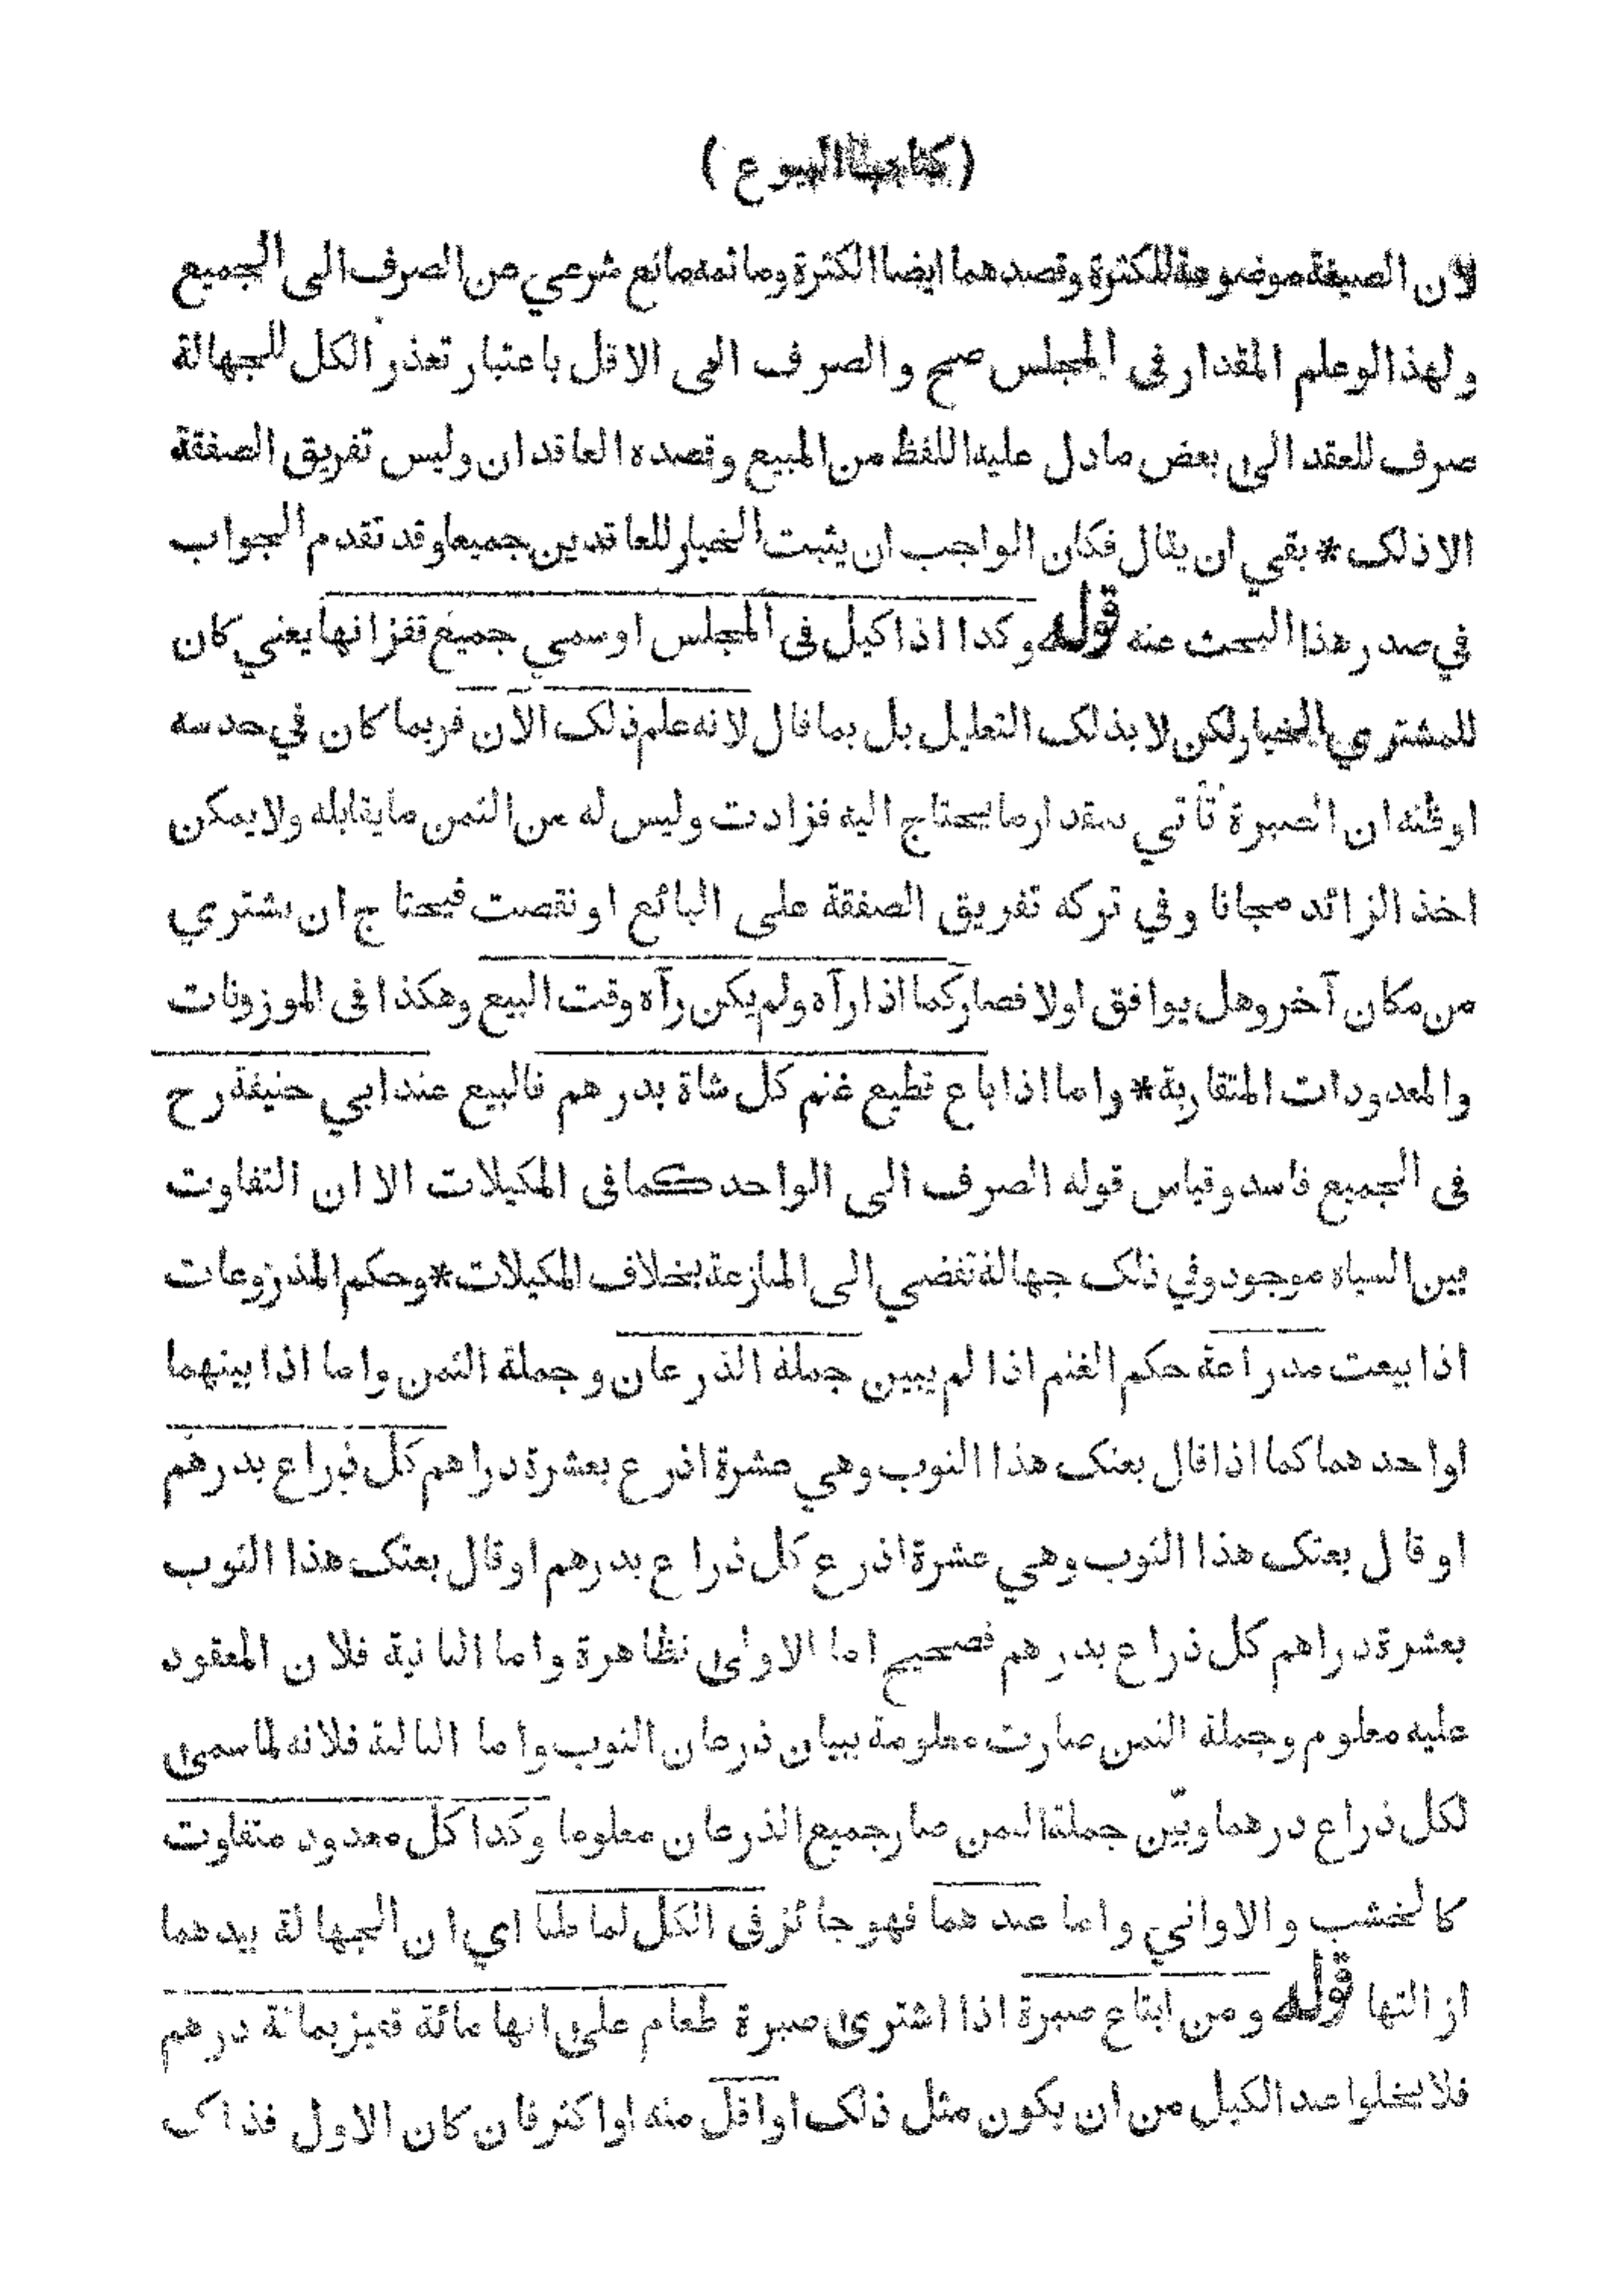 ( كتاب البيوع )
لان الصيغة موضوعة للكثرة وقصدهما ايضا الكثرة وما ثمه مانع شرعي من الصرف الى الجميع
ولهذا لو علم المقدار فى المجلس صح والصرف الى الاقل باعتبار تعذر الكل للجهالة
صرف للعقد الى بعض ما دل عليه اللفظ من المبيع وقصده العاقدان وليس تفريق الصفقة
الا ذلك * بقي ان يقال فكان الواجب ان يثبت الخيار للعاقدين جميعا وقد تقدم الجواب
في صدر هذا البحث عنه قوله وكذا اذا كيل فى المجلس او سمى جميع قفزانها يعني كان
للمشتري الخيار ولكن لا بذلك التعليل بل بما قال لانه علم ذلك الآن فربما كان في حدسه
او ظنه ان الصبرة تأتي بمقدار ما يحتاج اليه فزادت وليس له من الثمن ما يقابله ولا يمكن
اخذ الزائد مجانا وفي تركه تفريق الصفقة على البائع او نقصت فيحتاج ان يشتري
من مكان آخر وهل يوافق اولا فصار كما اذا رآه ولم يكن رآه وقت البيع وهكذا فى الموزونات
والمعدودات المتقاربة * واما اذا باع قطيع غنم كل شاة بدرهم فالبيع عند ابي حنيفة رح
فى الجميع فاسد وقياس قوله الصرف الى الواحد كما فى المكيلات الا ان التفاوت
بين الشياه موجود وفي ذلك جهالة تفضي الى المنازعة بخلاف المكيلات * وحكم المذروعات
اذا بيعت مذراعة حكم الغنم اذا لم يبين جملة الذرعان وجملة الثمن واما اذا بينهما
او احدهما كما اذا قال بعتك هذا الثوب وهي عشرة اذرع بعشرة دراهم كل ذراع بدرهم
او قال بعتك هذا الثوب وهي عشرة اذرع كل ذراع بدرهم او قال بعتك هذا الثوب
بعشرة دراهم كل ذراع بدرهم فصحيح اما الاولى فظاهرة واما الثانية فلان المعقود
عليه معلوم وجملة الثمن صارت معلومة ببيان ذرعان الثوب واما الثالثة فلانه لما سمى
لكل ذراع درهما وبيّن جملة الثمن صار جميع الذرعان معلوما وكذا كل معدود متفاوت
كالخشب والاواني واما عندهما فهو جائز فى الكل لما قلنا اي ان الجهالة بيدهما
ازالتها قوله ومن ابتاع صبرة اذا اشترى صبرة طعام على انها مائة قفيز بمائة درهم
فلا يخلوا عند الكيل من ان يكون مثل ذلك او اقل منه او اكثر فان كان الاول فذاك